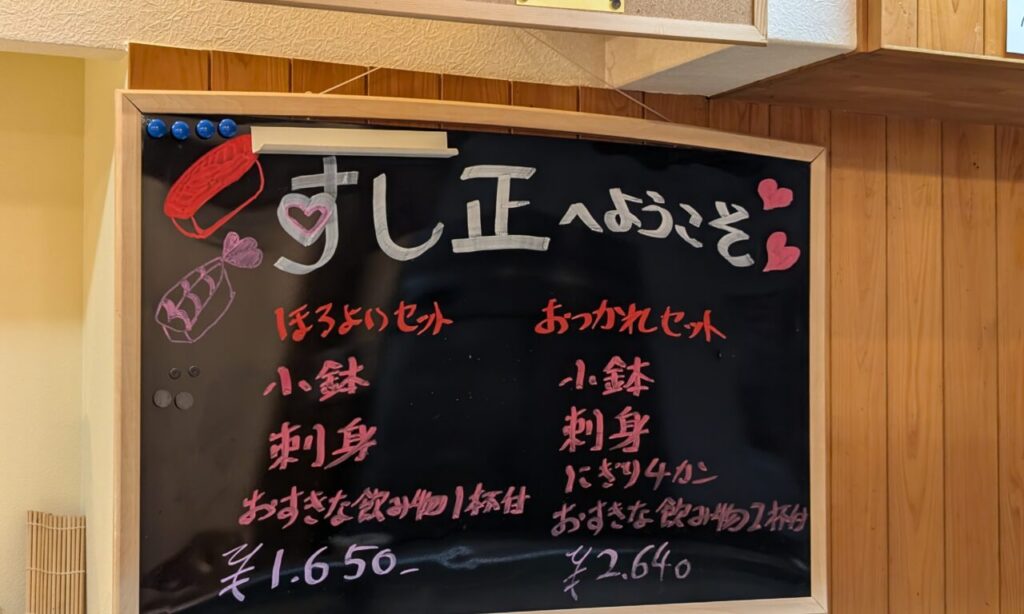 すし正へようこそ
ほろよいセット
小鉢
刺身
おすきな飲み物1杯付
¥1.650-
おつかれセット
小鉢
刺身
にぎり4カン
おすきな飲み物2杯付
¥2.640